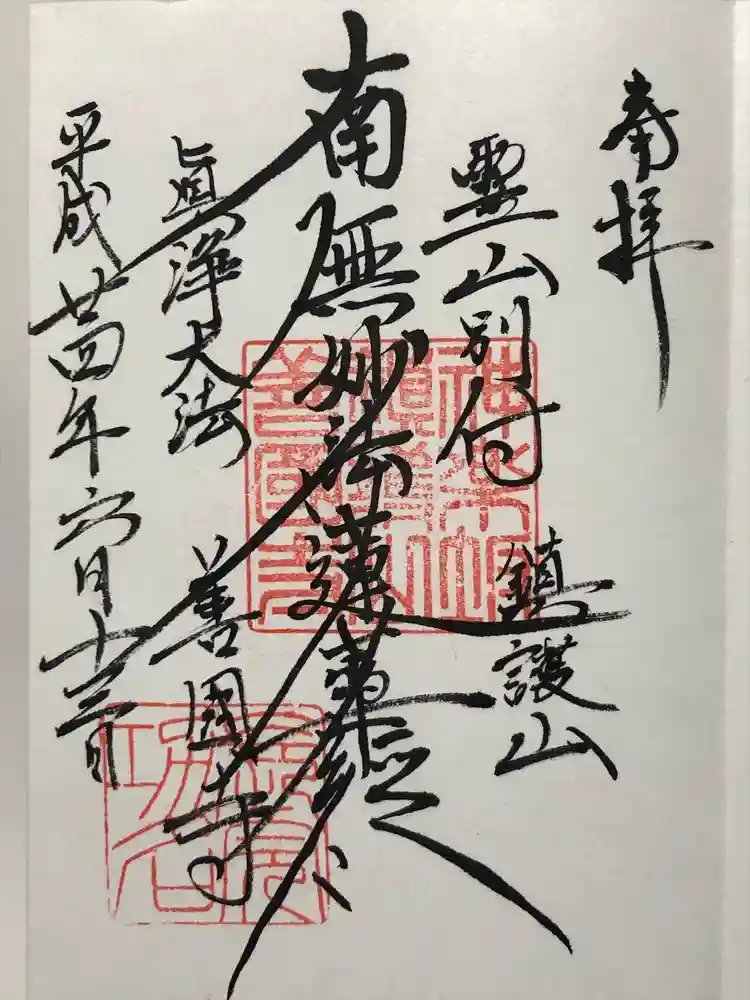 奉拝
霊山別付
鎮護山
南無妙法蓮華経
眞浄大法
善國寺
平成廿四年六月十三日
神楽坂
鎮護山
善國寺